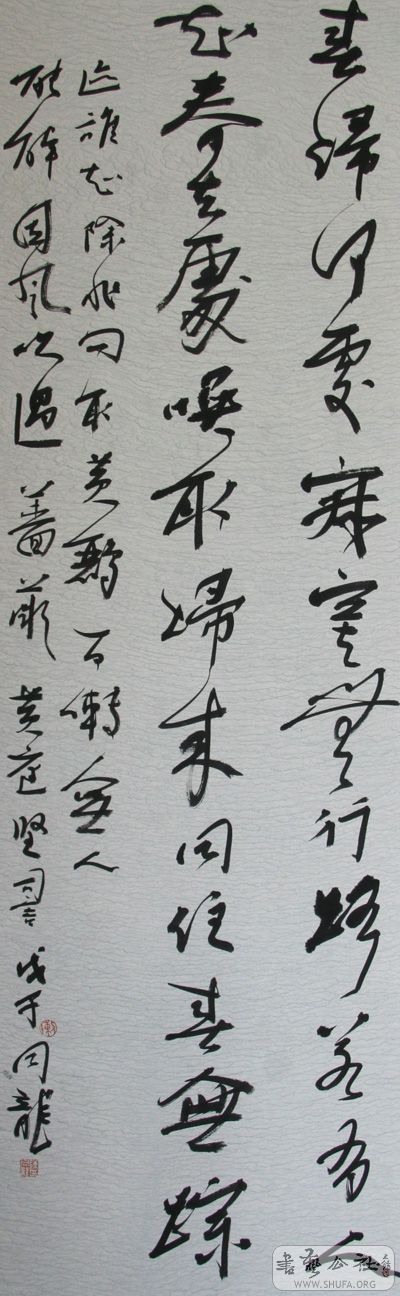 春歸何處寂寞無行路若有人
知春去處喚取歸來同住春無踪
迹誰知除非問取黃鸝百囀無人
能解因風吹過薔薇 黃庭堅詞 戊子 同龍
書法公社
WWW.SHUFA.ORG